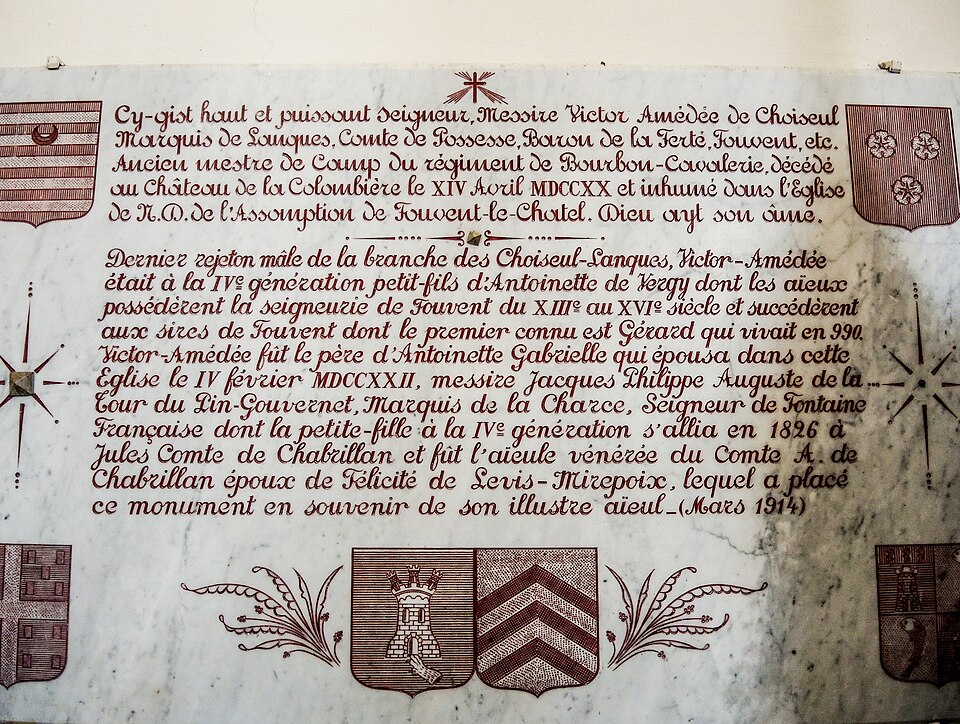 Cy-gist haut et puissant seigneur, Messire Victor Amédée de Choiseul
Marquis de Langues, Comte de Possesse, Baron de la Ferté, Fouvent, etc.
Ancien mestre de Camp du régiment de Bourbon-Cavalerie, décédé
au Château de la Colombière le XIV Avril MDCCXX et inhumé dans l'Eglise
de N.D. de l'Assomption de Fouvent-le-Chatel. Dieu ayt son âme.
Dernier rejeton mâle de la branche des Choiseul-Langues, Victor-Amédée
était à la IVe génération petit-fils d'Antoinette de Vergy dont les aïeux
possédèrent la seigneurie de Fouvent du XIIIe au XVIe siècle et succédèrent
aux sires de Fouvent dont le premier connu est Gérard qui vivait en 990.
Victor-Amédée fût le père d'Antoinette Gabrielle qui épousa dans cette
Eglise le IV février MDCCXXII, messire Jacques Philippe Auguste de la
Tour du Pin-Gouvernet, Marquis de la Charce, Seigneur de Fontaine
Française dont la petite-fille à la IVe génération s'allia en 1826 à
Jules Comte de Chabrillan et fût l'aïeule vénérée du Comte A. de
Chabrillan époux de Félicité de Levis-Mirepoix, lequel a placé
ce monument en souvenir de son illustre aïeul_(Mars 1914)